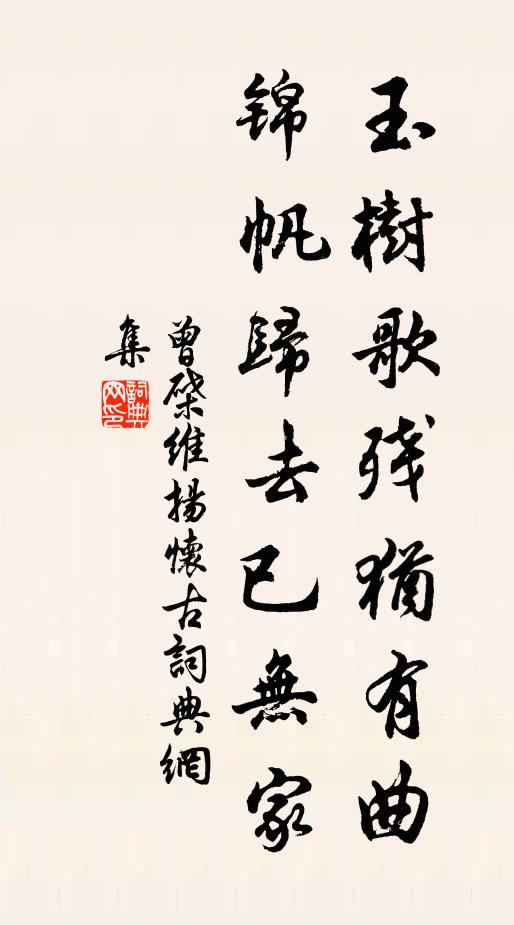 玉樹歌残猶有曲
錦帆歸去已無家
曾棨維揚懷古詞典網
集
詞典
网印